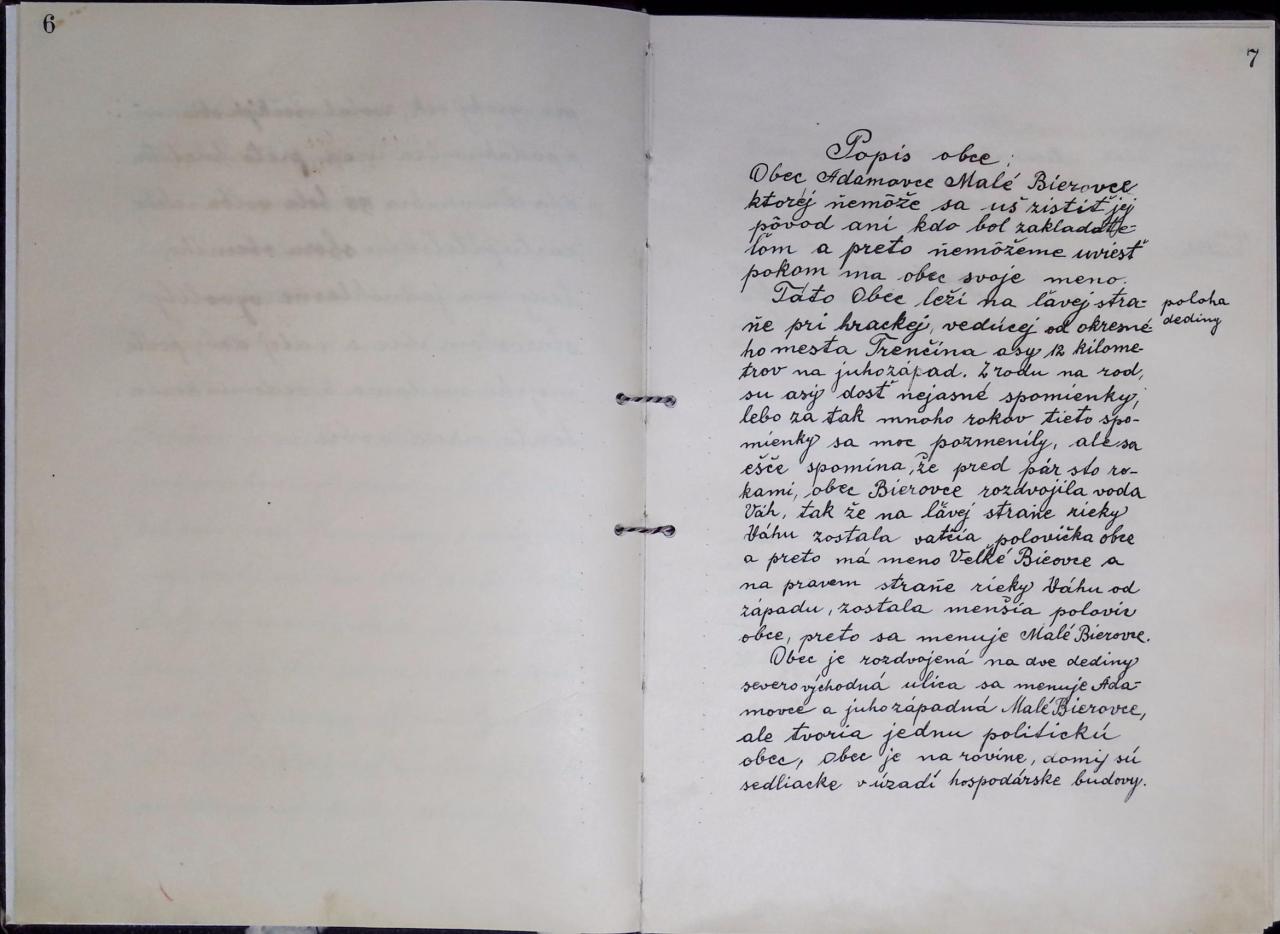 6
7
Popis obce:
Obec Adamovce Malé Bierovce
ktorej ňemože sa uš zistiť jej
pôvod ani kdo bol zakladate-
ľom a preto ňemôžeme uviesť
pokom ma obec svoje meno.
Táto Obec leží na ľávej stra-
ňe pri hrackej, vedúcej od okresné-
poloha
dediny
ho mesta Trenčína asy 12 kilome-
trov na juhozápad. Z rodu na rod,
su asy dosť ňejasné spomienky,
lebo za tak mnoho rokov tieto spo-
mienky sa moc pozmenily, ale sa
ešče spomína, že pred pár sto ro-
kami, obec Bierovce rozdvojila voda
Váh, tak že na ľávej straňe rieky
Váhu zostala vatčia polovička obce
a preto má meno Veľké Bieovce a
na pravem straňe rieky Váhu od
západu, zostala menšia polovic
obce, preto sa menuje Malé Bierovce.
Obec je rozdvojená na dve dediny
severovýchodná ulica sa menuje Ada-
movce a juhozápadná Malé Bierovce,
ale tvoria jednu politickú
obec, Obec je na rovine, domy sú
sedliacke v úzadí hospodárske budovy.